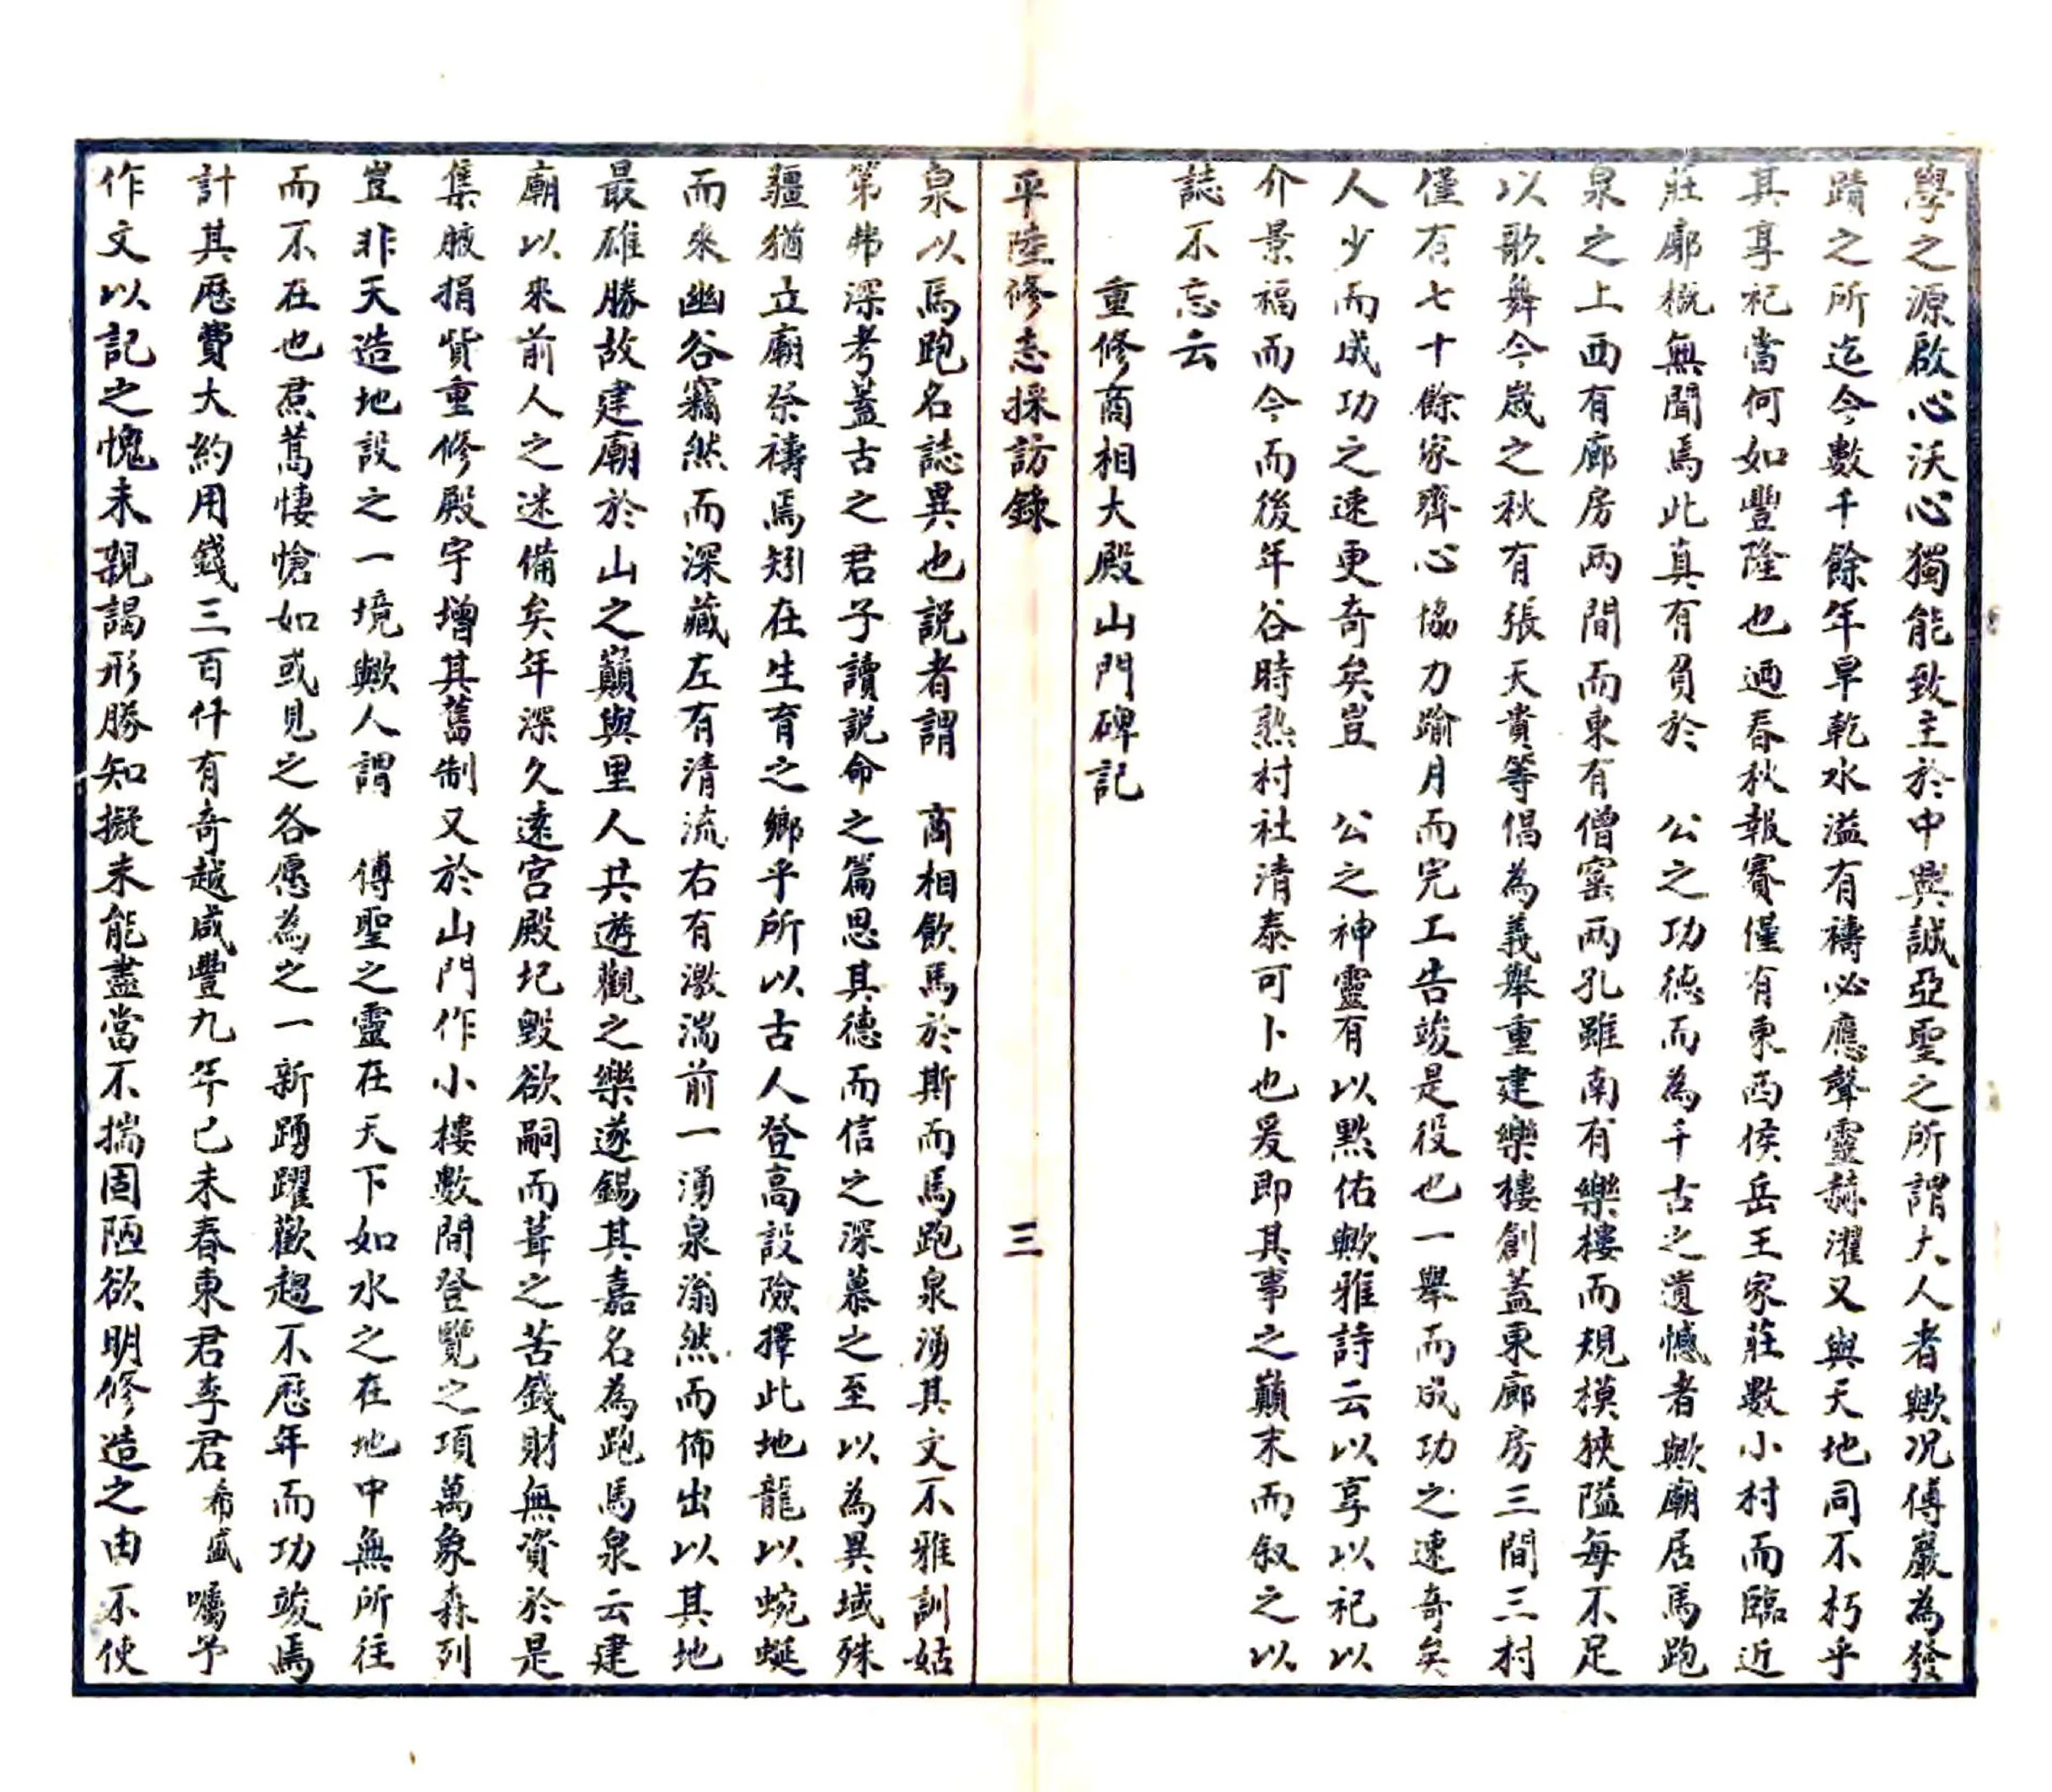 學之源啟心沃心獨能致主於中興誠亞聖之所謂大人者歟况傅巖為發
蹟之所迄今數千餘年旱乾水溢有禱必應聲靈赫濯又與天地同不朽乎
其享祀當何如豐隆也迺春秋報賽僅有東西侯岳王家莊數小村而臨近
莊廓概無聞焉此真有負於　公之功德而為千古之遺憾者歟廟居馬跑
泉之上西有廊房两間而東有僧窰两孔雖南有樂樓而規模狹隘每不足
以歌舞今歲之秋有張天貴等倡為義舉重建樂樓創蓋東廊房三間三村
僅有七十餘家齊心協力踰月而完工告竣是役也一舉而成功之速奇矣
人少而成功之速更奇矣豈　公之神靈有以默佑歟雅詩云以享以祀以
介景福而今而後年谷時熟村社清泰可卜也爰即其事之巔末而叙之以
誌不忘云
重修商相大殿山門碑記
平陸修志採訪錄　三
泉以馬跑名誌異也説者謂　商相飲馬於斯而馬跑泉湧其文不雅訓姑
第弗深考蓋古之君子讀説命之篇思其德而信之深慕之至以為異域殊
疆猶立廟祭禱焉矧在生育之鄉乎所以古人登高設險擇此地龍以蜿蜒
而來幽谷窈然而深藏左有清流右有激湍前一湧泉滃然而佈出以其地
最雄勝故建廟於山之巔與里人共遊觀之樂遂錫其嘉名為跑馬泉云建
廟以來前人之述備矣年深久遠宫殿圮毁欲嗣而葺之苦錢財無資於是
集腋捐貲重修殿宇增其舊制又於山門作小樓數間登覽之項萬象森列
豈非天造地設之一境歟人謂　傅聖之靈在天下如水之在地中無所往
而不在也焄蒿悽愴如或見之各愿為之一新踴躍歡趨不厯年而功竣焉
計其厯費大約用錢三百仟有奇越咸豐九年己未春東君李君希盛囑予
作文以記之愧未親謁形勝知擬未能盡當不揣固陋欲明修造之由不使